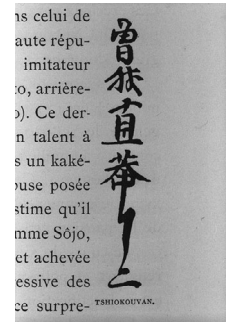 ns celui de
aute répu-
imitateur
to, arrière-
o). Ce der-
n talent à
s un kaké-
ouse posée
stime qu'il
mme Sôjo,
et achevée
ressive des
ce surpre-
曽我直菴
TSHIOKOUVAN.